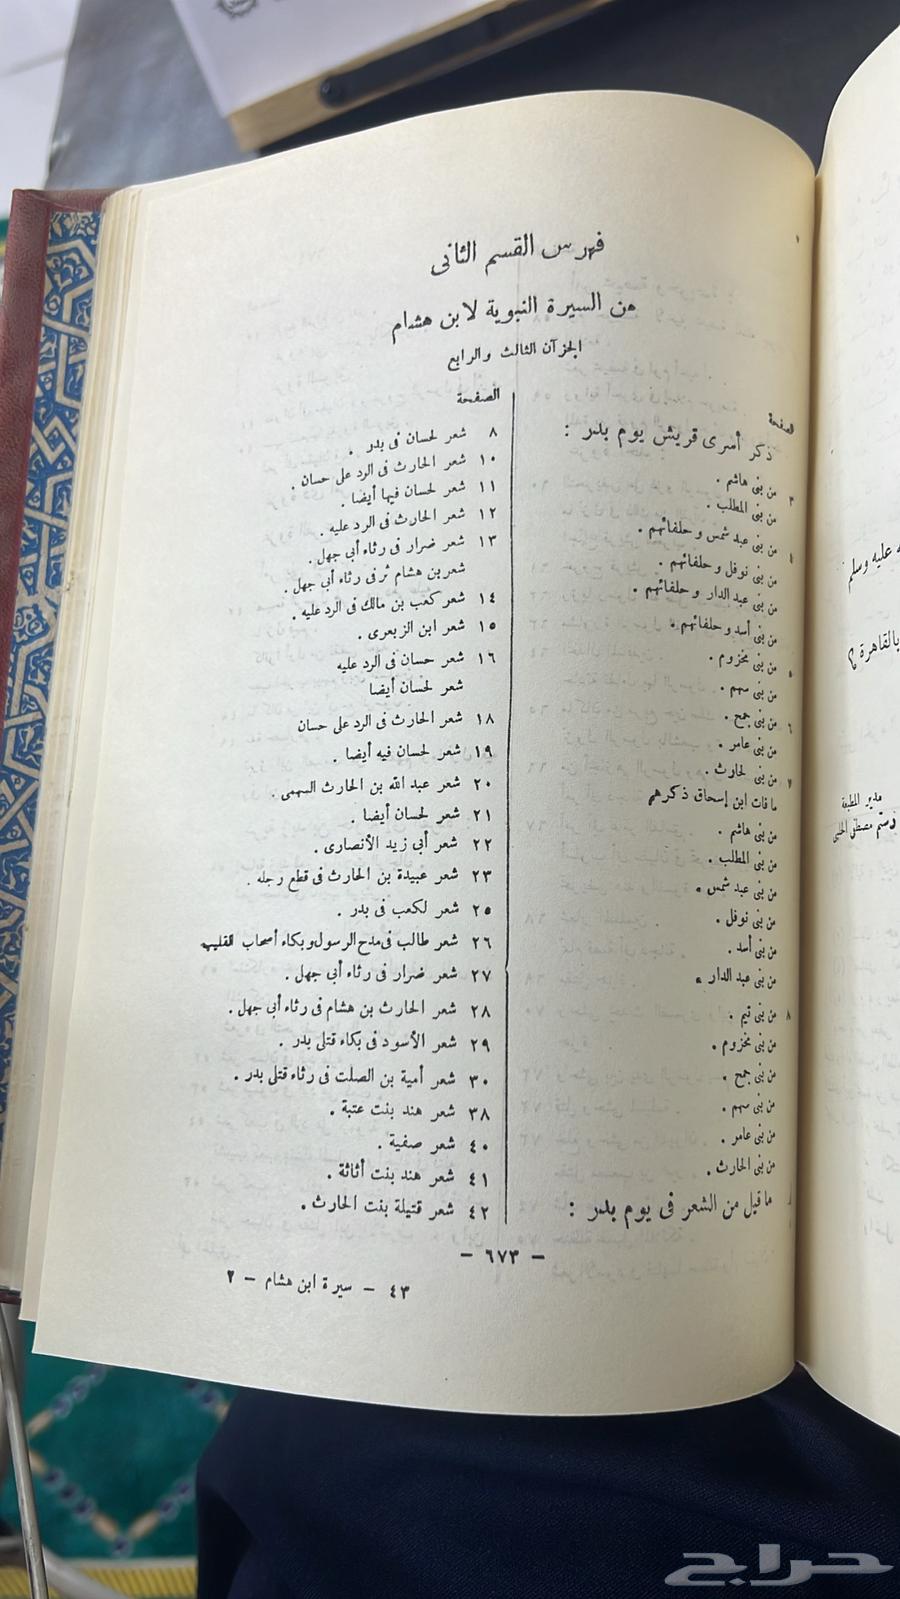 فهرس القسم الثانى
من السيرة النبوية لابن هشام
الجزآن الثالث والرابع
الصفحة
ذكر أسرى قريش يوم بدر :
٣ من بنى هاشم .
من بنى المطلب .
من بنى عبد شمس وحلفائهم .
من بنى نوفل وحلفائهم .
من بنى عبد الدار وحلفائهم .
من بنى أسد وحلفائهم .
من بنى مخزوم .
من بنى سهم .
٦ من بنى جمح .
من بنى عامر .
٧ من بنى الحارث .
ما فات ابن إسحاق ذكرهم
من بنى هاشم .
من بنى المطلب .
من بنى عبد شمس .
من بنى نوفل .
من بنى أسد .
من بنى عبد الدار .
٨ من بنى تيم .
من بنى مخزوم .
من بنى جمح .
من بنى سهم .
من بنى عامر .
من بنى الحارث .
ما قيل من الشعر فى يوم بدر :
الصفحة
٨ شعر لحسان فى بدر .
١٠ شعر الحارث فى الرد على حسان .
١١ شعر لحسان فيها أيضا .
١٢ شعر الحارث فى الرد عليه .
١٣ شعر ضرار فى رثاء أبى جهل .
شعر بن هشام فى رثاء أبى جهل .
١٤ شعر كعب بن مالك فى الرد عليه .
١٥ شعر ابن الزبعرى .
١٦ شعر حسان فى الرد عليه
شعر لحسان أيضا
١٨ شعر الحارث فى الرد على حسان
١٩ شعر لحسان فيه أيضا .
٢٠ شعر عبد الله بن الحارث السهمى .
٢١ شعر لحسان أيضا .
٢٢ شعر أبى زيد الأنصارى .
٢٣ شعر عبيدة بن الحارث فى قطع رجله .
٢٥ شعر لكعب فى بدر .
٢٦ شعر طالب فى مدح الرسول وبكاء أصحاب القليب
٢٧ شعر ضرار فى رثاء أبى جهل .
٢٨ شعر الحارث بن هشام فى رثاء أبى جهل .
٢٩ شعر الأسود فى بكاء قتلى بدر .
٣٠ شعر أمية بن الصلت فى رثاء قتلى بدر .
٣٨ شعر هند بنت عتبة .
٤٠ شعر صفية .
٤١ شعر هند بنت أثاثة .
٤٢ شعر قتيلة بنت الحارث .
— ٦٧٣ —
٤٣ - سيرة ابن هشام - ٢
عليه وسلم
بالقاهرة ؟
مدير المطبعة
رستم مصطفى الحلبى
حراج